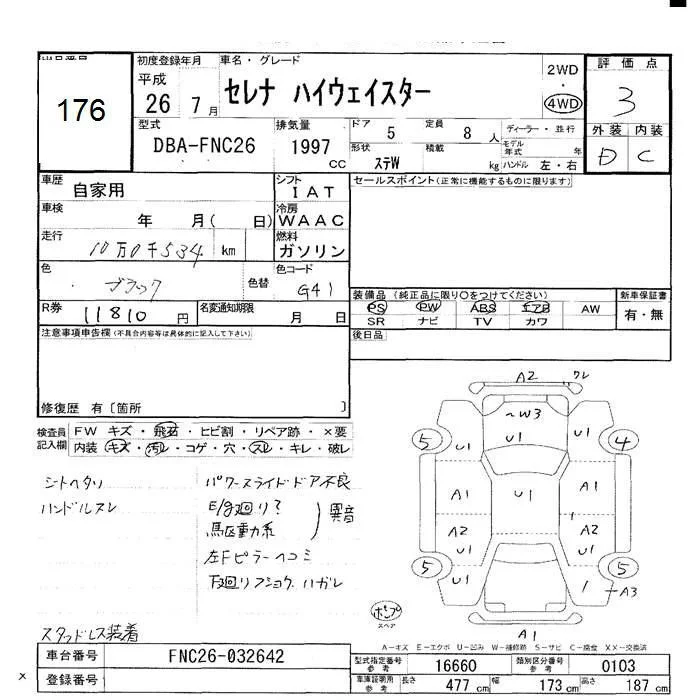 176
初度登録年月
平成
26 7 月
車名・グレード
セレナ ハイウェイスター
2WD
・
4WD
評価点
3
外装 内装
D C
型式
DBA-FNC26
排気量
1997
CC
ドア
5
定員
8 人
形状
ステW
積載
kg
ディーラー・並行
モデル年式 年
ハンドル 左・右
車歴
自家用
シフト
IAT
セールスポイント(正常に機能するものに限ります)
車検
年 月( 日)
冷房
WAAC
走行
10万0千534 km
燃料
ガソリン
色
ブラック
色替
色コード
G41
R券
11810 円
名変通知期限
月 日
装備品(純正品に限り○をつけてください)
PS PW ABS エアB AW
SR ナビ TV カワ
新車保証書
有・無
注意事項申告欄(不具合内容等は具体的に記入して下さい)
後日品
修復歴 有〔箇所 〕
検査員記入欄
FW キズ・飛石・ヒビ割・リペア跡・×要
内装 キズ・汚レ・コゲ・穴・スレ・キレ・破レ
シートヘタリ
ハンドルスレ
パワースライドドア不良
E/g廻り?
駆動系
異音
左Fピラーヘコミ
下廻りフショク、ハガレ
スタッドレス装着
A2 ワレ
~W3
U1
5 U1 U1 4
A1 U1 A1
A2 A2
U1 U1
5 U1 5
A3
A1
ポンプ
スペア
A-キズ E-エクボ U-凹み W-補修跡 S-サビ C-腐食 XX-交換済
車台番号
FNC26-032642
登録番号
型式指定番号
参考
16660
類別区分番号
参考
0103
車庫証明用
参考
長さ 477 cm
幅 173 cm
高さ 187 cm
x